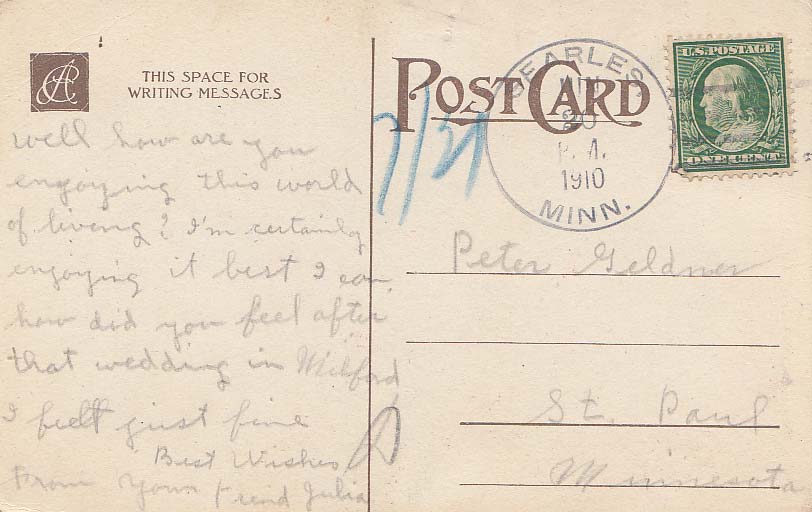 THIS SPACE FOR
WRITING MESSAGES
well how are you
engoying this world
of liveng? I'm certainly
engoying it best I can,
how did you feel after
that wedding in Milford,
I feelt just fine
Best Wishes
From your Frend Julia
POST CARD
SEARLES,
20
P.M.
1910
MINN.
U.S. POSTAGE
ONE CENT
Peter Geldner
St. Paul
Minnesota